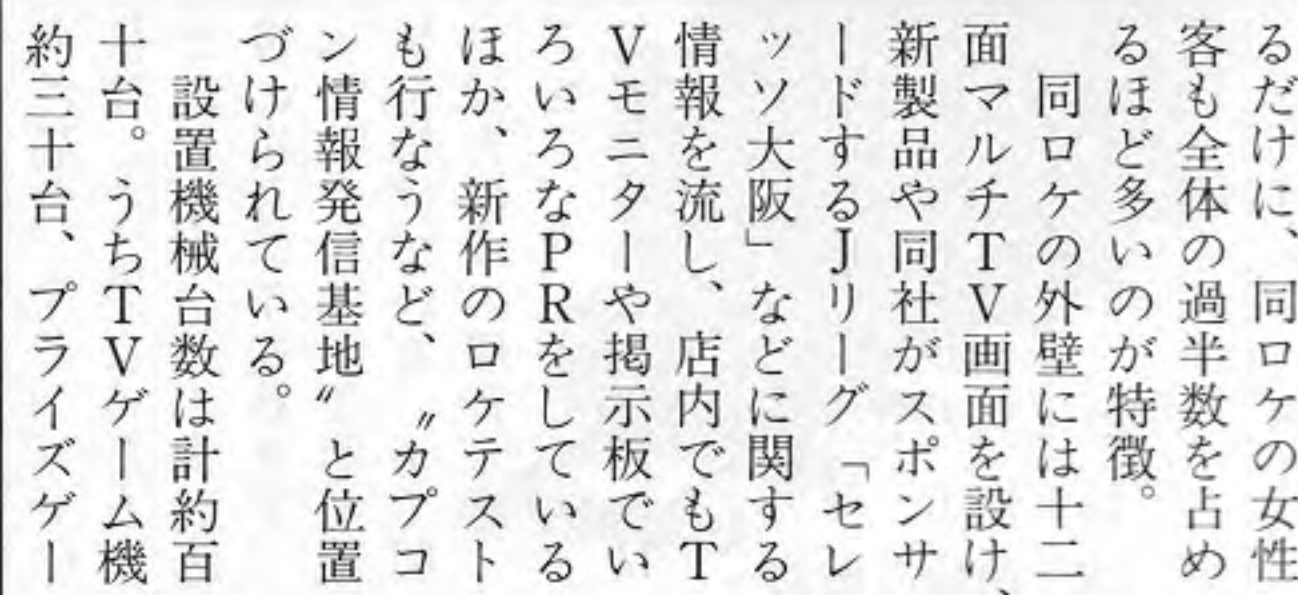 るだけに、同ロケの女性
客も全体の過半数を占め
るほど多いのが特徴。
同ロケの外壁には十二
面マルチTV画面を設け、
新製品や同社がスポンサ
ードするJリーグ「セレ
ッソ大阪」などに関する
情報を流し、店内でもT
Vモニターや掲示板でい
ろいろなPRをしている
ほか、新作のロケテスト
も行なうなど、〝カプコ
ン情報発信基地〟と位置
づけられている。
設置機械台数は計約百
十台。うちTVゲーム機
約三十台、プライズゲー